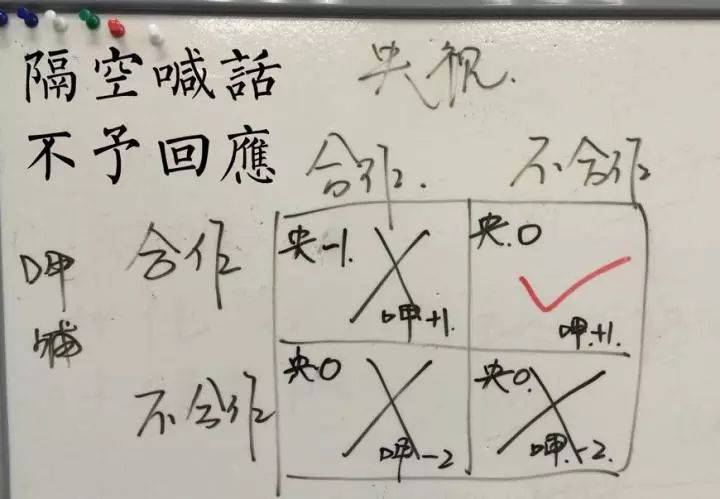 隔空喊話
不予回應
央视.
合作.
不合作
呷
哺
合作
央-1.
呷+1.
央.0
呷.+1.
不合作
央.0
呷-2
央.0.
呷.-2.